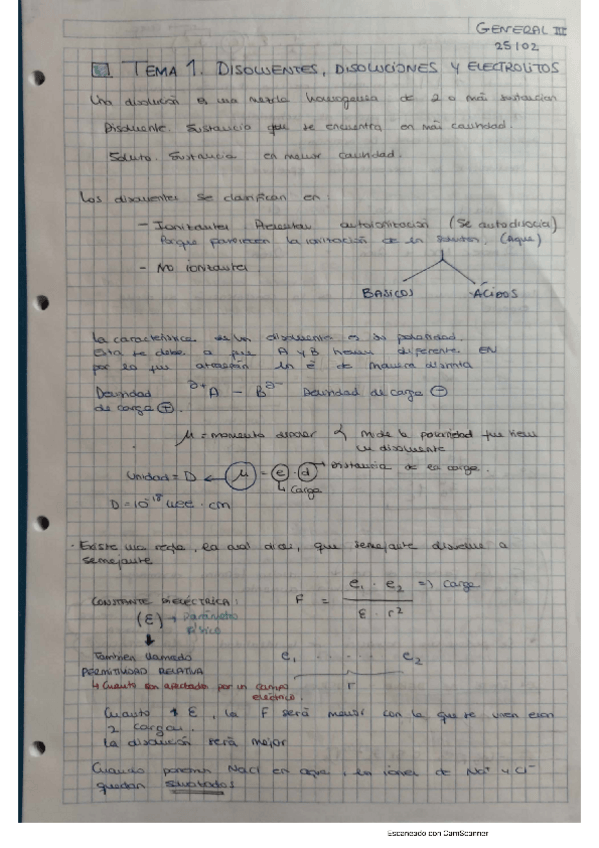 GENERAL III
25/02
TEMA 1. DISOLVENTES, DISOLUCIONES Y ELECTROLITOS
Una disolución es una mezcla homogenea de 2 o más sustancias
Disolvente. Sustancia que se encuentra en más cantidad.
Soluto. Sustancia en menor cantidad.
Los disolventes se clasifican en:
- Ionizantes. Presentan autoionización (se autodisocia)
Porque favorecen la ionización de un soluto. (agua)
- No ionizantes
BÁSICOS ÁCIDOS
La característica de un disolvente es su polaridad.
Esta se debe a que A y B tienen diferente EN
por lo que atraerán los é de manera distinta
Densidad ∂+A - B∂- Densidad de carga ⊖
de carga ⊕.
μ = momento dipolar mide la polaridad que tiene
un disolvente
Unidad = D ← μ = e · d → distancia de la carga.
↳ carga
D = 10⁻¹⁸ uee · cm
· Existe una regla, la cual dice, que semejante disuelve a
semejante
CONSTANTE DIELÉCTRICA: F = e₁ · e₂ / ε · r² => carga
(ε) → Parámetro
físico
También llamado e₁ · · · · · e₂
PERMITIVIDAD RELATIVA r
↳ Cuanto son afectados por un campo
eléctrico.
Cuanto ↑ ε, la F será menor con la que se unen esas
2 cargas.
La disolución será mejor
Cuando ponemos NaCl en agua, los iones de Na⁺ y Cl⁻
quedan solvatados
Escaneado con CamScanner